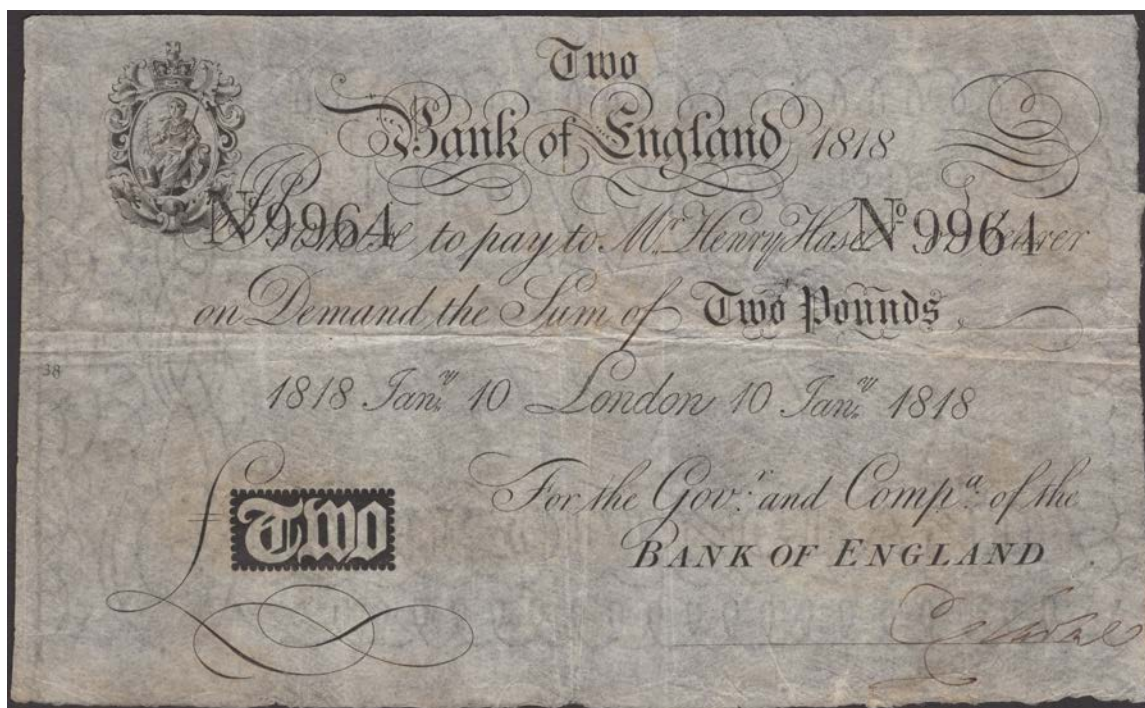 Two
Bank of England 1818
Nº 9964 to pay to Mr. Henry Hase Nº 9964
on Demand the Sum of Two Pounds
38
1818 Jany. 10 London 10 Jany. 1818
£ Two
For the Govr. and Compa. of the
BANK OF ENGLAND